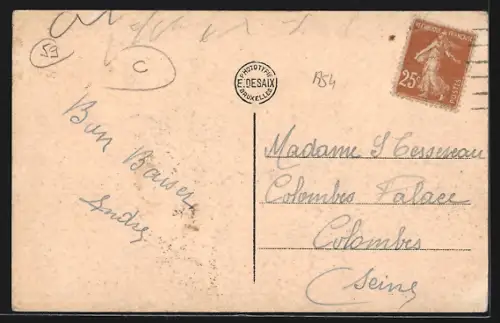 59
C
PHOTOTYPIE
E. DESAIX
BRUXELLES
A54
RÉPUBLIQUE FRANÇAISE
25c
POSTES
Bon Baiser
André
Madame S Tessereau
Colombes Palace
Colombes
(Seine)